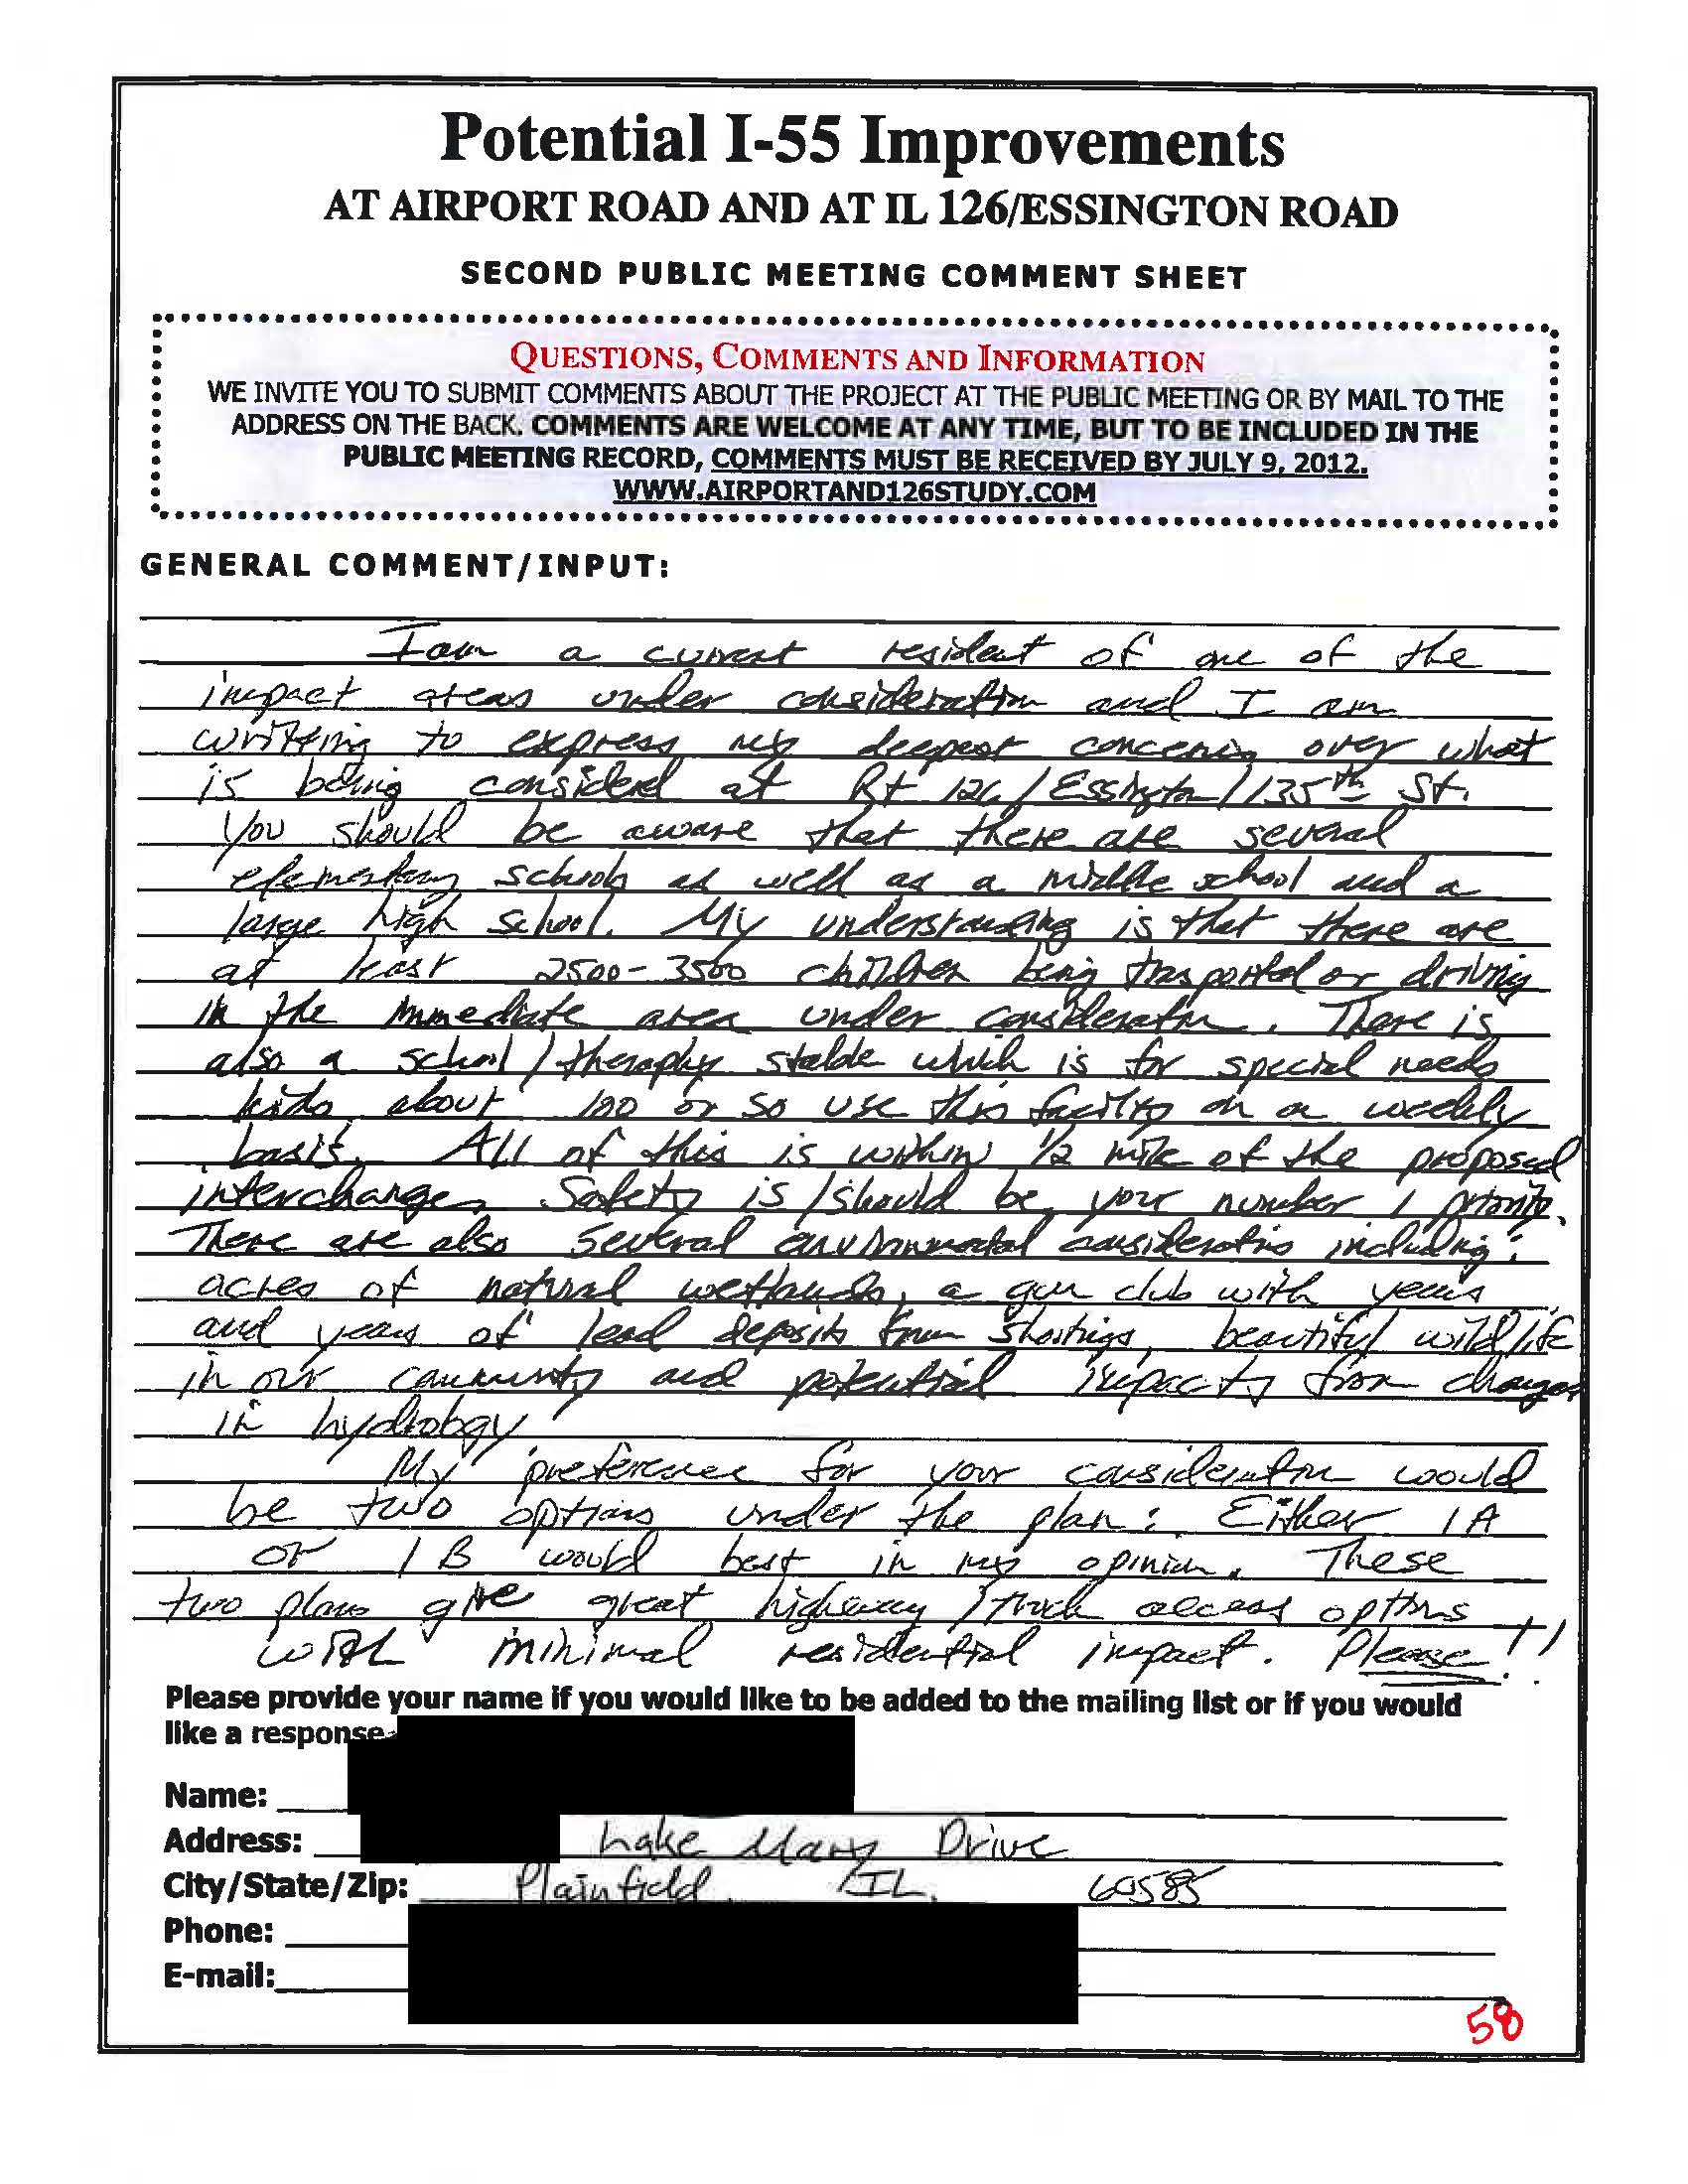 Potential I-55 Improvements
AT AIRPORT ROAD AND AT IL 126/ESSINGTON ROAD
SECOND PUBLIC MEETING COMMENT SHEET
QUESTIONS, COMMENTS AND INFORMATION
WE INVITE YOU TO SUBMIT COMMENTS ABOUT THE PROJECT AT THE PUBLIC MEETING OR BY MAIL TO THE
ADDRESS ON THE BACK. COMMENTS ARE WELCOME AT ANY TIME, BUT TO BE INCLUDED IN THE
PUBLIC MEETING RECORD, COMMENTS MUST BE RECEIVED BY JULY 9, 2012.
WWW.AIRPORTAND126STUDY.COM
GENERAL COMMENT/INPUT:
I am a current resident of one of the
impact areas under consideration and I am
writing to express my deepest concerns over what
is being considerd at Rt 126/Essington/135th St.
You should be aware that there are several
elementary schools as well as a middle school and a
large high school. My understanding is that there are
at least 2500-3500 children being transported or driving
in the immediate area under consideration. There is
also a school/theraphy stable which is for special needs
kids, about 100 or so use this facility on a weekly
basis. All of this is within 1/2 mile of the proposed
interchange. Safety is/should be your number 1 priority.
There are also several environmental considerations including:
acres of natural wetlands, a gun club with years
and years of lead deposits from shootings, beautiful wildlife
in our community and potential impacts from changes
in hydrology
My preference for your consideration would
be two options under the plan: Either 1A
or 1B would best in my opinion. These
two plans give great highway/truck access options
with minimal residential impact. Please!!!
Please provide your name if you would like to be added to the mailing list or if you would
like a response
Name:
Address: Lake Mary Drive
City/State/Zip: Plainfield, IL, 60585
Phone:
E-mail:
58